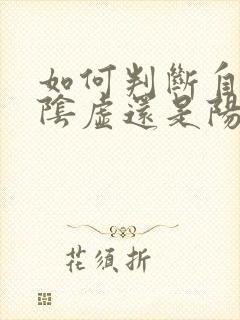 如何判斷自
陰虛還是陽
花須折